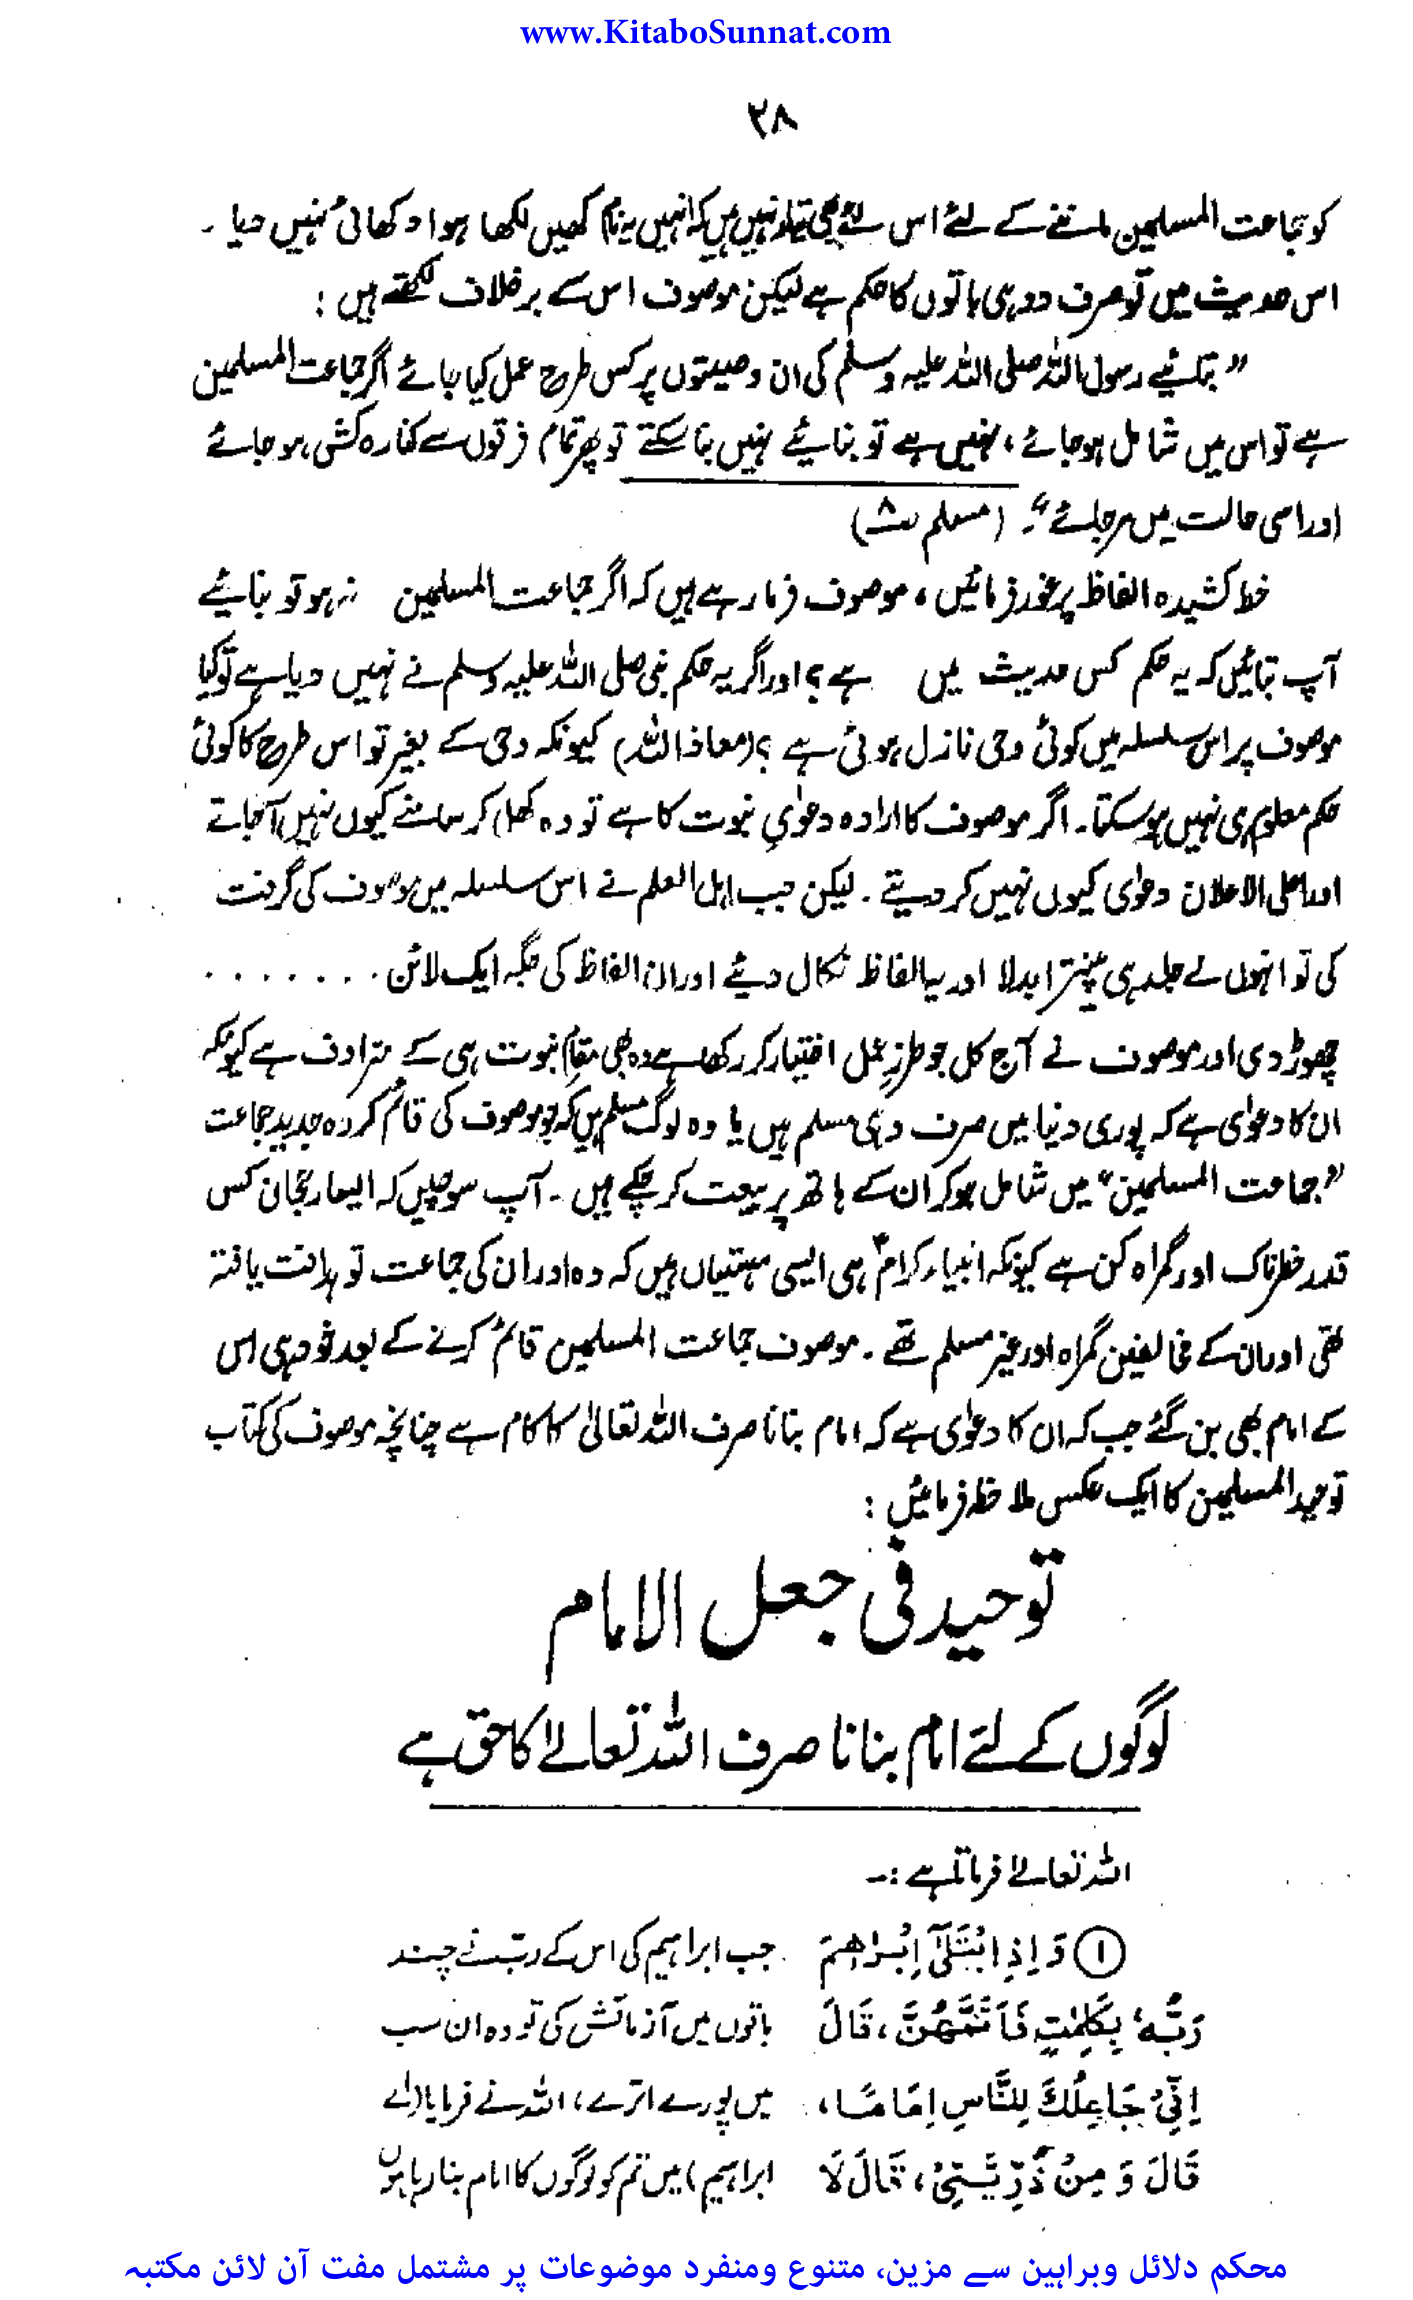 www.KitaboSunnat.com
۳۸
کو جماعت المسلمین ماننے کے لئے اس لئے بھی تیار نہیں ہیں کہ انہیں یہ نام کہیں لکھا ہوا دکھائی نہیں دیا ۔
اس حدیث میں تو صرف دو ہی باتوں کا حکم ہے لیکن موصوف اس کے برخلاف لکھتے ہیں :
” بتائیے رسول اللہ صلی اللہ علیہ وسلم کی ان وصیتوں پر کس طرح عمل کیا جائے اگر جماعت المسلمین
ہے تو اس میں شامل ہو جائے ، نہیں ہے تو بنائیے نہیں بنا سکتے تو پھر تمام فرقوں سے کنارہ کش ہو جائے
اور اسی حالت میں مر جائے “۔ (مسلم ص۸)
خط کشیدہ الفاظ پر غور فرمائیں ، موصوف فرما رہے ہیں کہ اگر جماعت المسلمین نہ ہو تو بنائیے
آپ بتائیں کہ یہ حکم کس حدیث میں ہے ؟ اور اگر یہ حکم نبی صلی اللہ علیہ وسلم نے نہیں دیا ہے تو کیا
موصوف پر اس سلسلہ میں کوئی وحی نازل ہوئی ہے ؟ (معاذ اللہ) کیونکہ وحی کے بغیر تو اس طرح کا کوئی
حکم معلوم ہی نہیں ہو سکتا ۔ اگر موصوف کا ارادہ دعوٰیِ نبوت کا ہے تو وہ کھل کر سامنے کیوں نہیں آ جاتے
اور علی الاعلان دعوٰی کیوں نہیں کر دیتے ۔ لیکن جب اہل العلم نے اس سلسلہ میں موصوف کی گرفت
کی تو انہوں نے جلد ہی پینترا بدلا اور یہ الفاظ نکال دیئے اور ان الفاظ کی جگہ ایک لائن . . . . . . .
چھوڑ دی اور موصوف نے آج کل جو طرزِ عمل اختیار کر رکھا ہے وہ بھی مقامِ نبوت ہی کے مترادف ہے کیونکہ
ان کا دعوٰی ہے کہ پوری دنیا میں صرف وہی مسلم ہیں یا وہ لوگ مسلم ہیں کہ جو موصوف کی قائم کردہ جدید جماعت
” جماعت المسلمین “ میں شامل ہو کر ان کے ہاتھ پر بیعت کر چکے ہیں ۔ آپ سوچیں کہ ایسا رجحان کس
قدر خطرناک اور گمراہ کن ہے کیونکہ انبیاء کرامؑ ہی ایسی ہستیاں ہیں کہ وہ اور ان کی جماعت تو ہدایت یافتہ
تھی اور ان کے مخالفین گمراہ اور غیر مسلم تھے ۔ موصوف جماعت المسلمین قائم کرنے کے بعد خود ہی اس
کے امام بھی بن گئے جب کہ ان کا دعوٰی ہے کہ امام بنانا صرف اللہ تعالیٰ کا کام ہے چنانچہ موصوف کی کتاب
توحید المسلمین کا ایک عکس ملاحظہ فرمائیں :
توحید فی جعل الامام
لوگوں کے لئے امام بنانا صرف اللہ تعالےٰ کا حق ہے
اللہ تعالےٰ فرماتا ہے :۔
① وَ اِذِ ابْتَلٰٓى اِبْرٰاهٖمَ جب ابراہیم کی اس کے ربّ نے چند
رَبُّهٗ بِكَلِمٰتٍ فَاَتَمَّهُنَّ ، قَالَ باتوں میں آزمائش کی تو وہ ان سب
اِنِّيْ جَاعِلُكَ لِلنَّاسِ اِمَامًا ، میں پورے اترے ، اللہ نے فرمایا (اے
قَالَ وَ مِنْ ذُرِّيَّتِيْ ، قَالَ لَا ابراہیم) میں تم کو لوگوں کا امام بنا رہا ہوں
محکم دلائل وبراہین سے مزین، متنوع ومنفرد موضوعات پر مشتمل مفت آن لائن مکتبہ